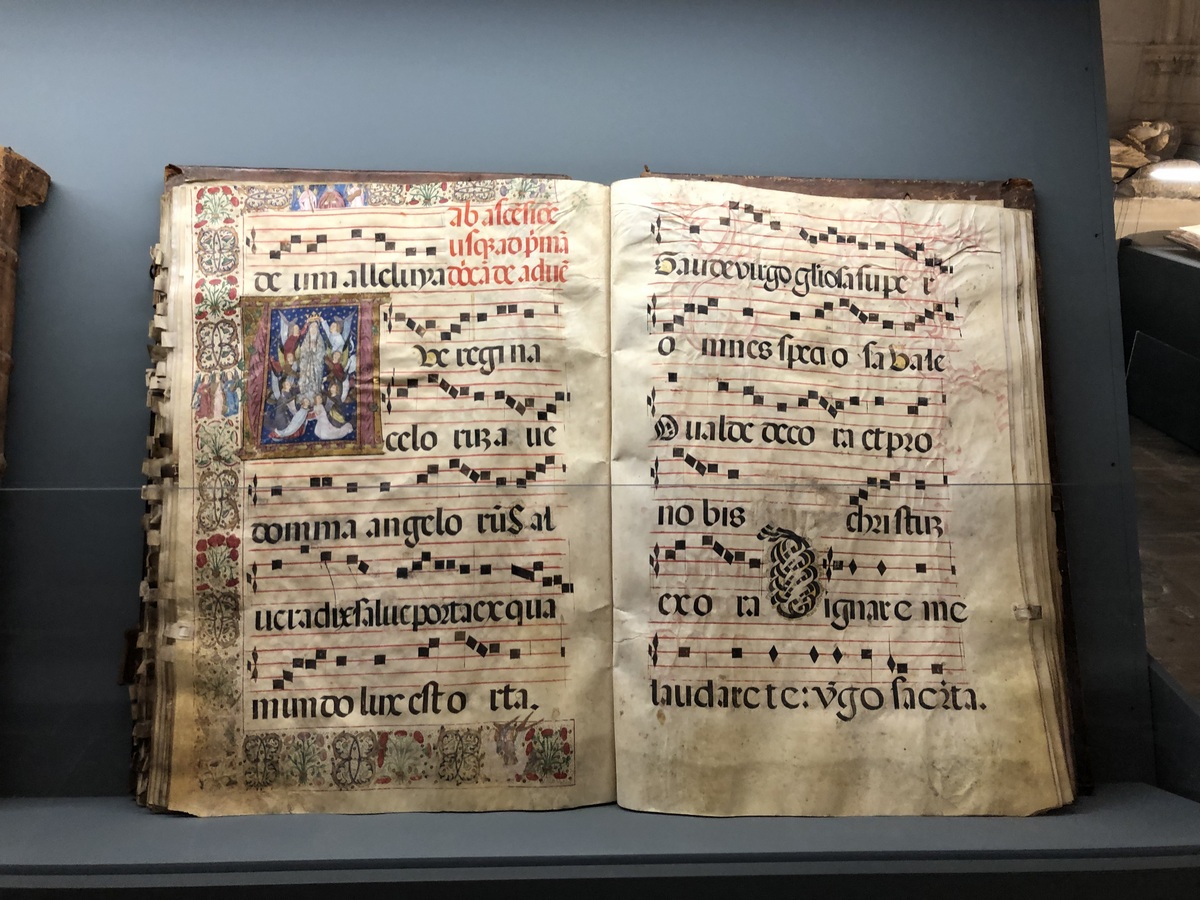 ab ascēsiōe
usq̄z ad p̄mā
de um alleluya dñicā de aduē
ve regi na
celo ruz a ve
domina angelo rūS al
ve radix salve porta ex qua
mundo lux est o rta.
Gaude virgo gl̄iosa supe r
o mnes speci o sa vale
O valde deco ra et pro
no bis christuz
exo ra Dignare me
laudare te: v̄go sac̄rta.